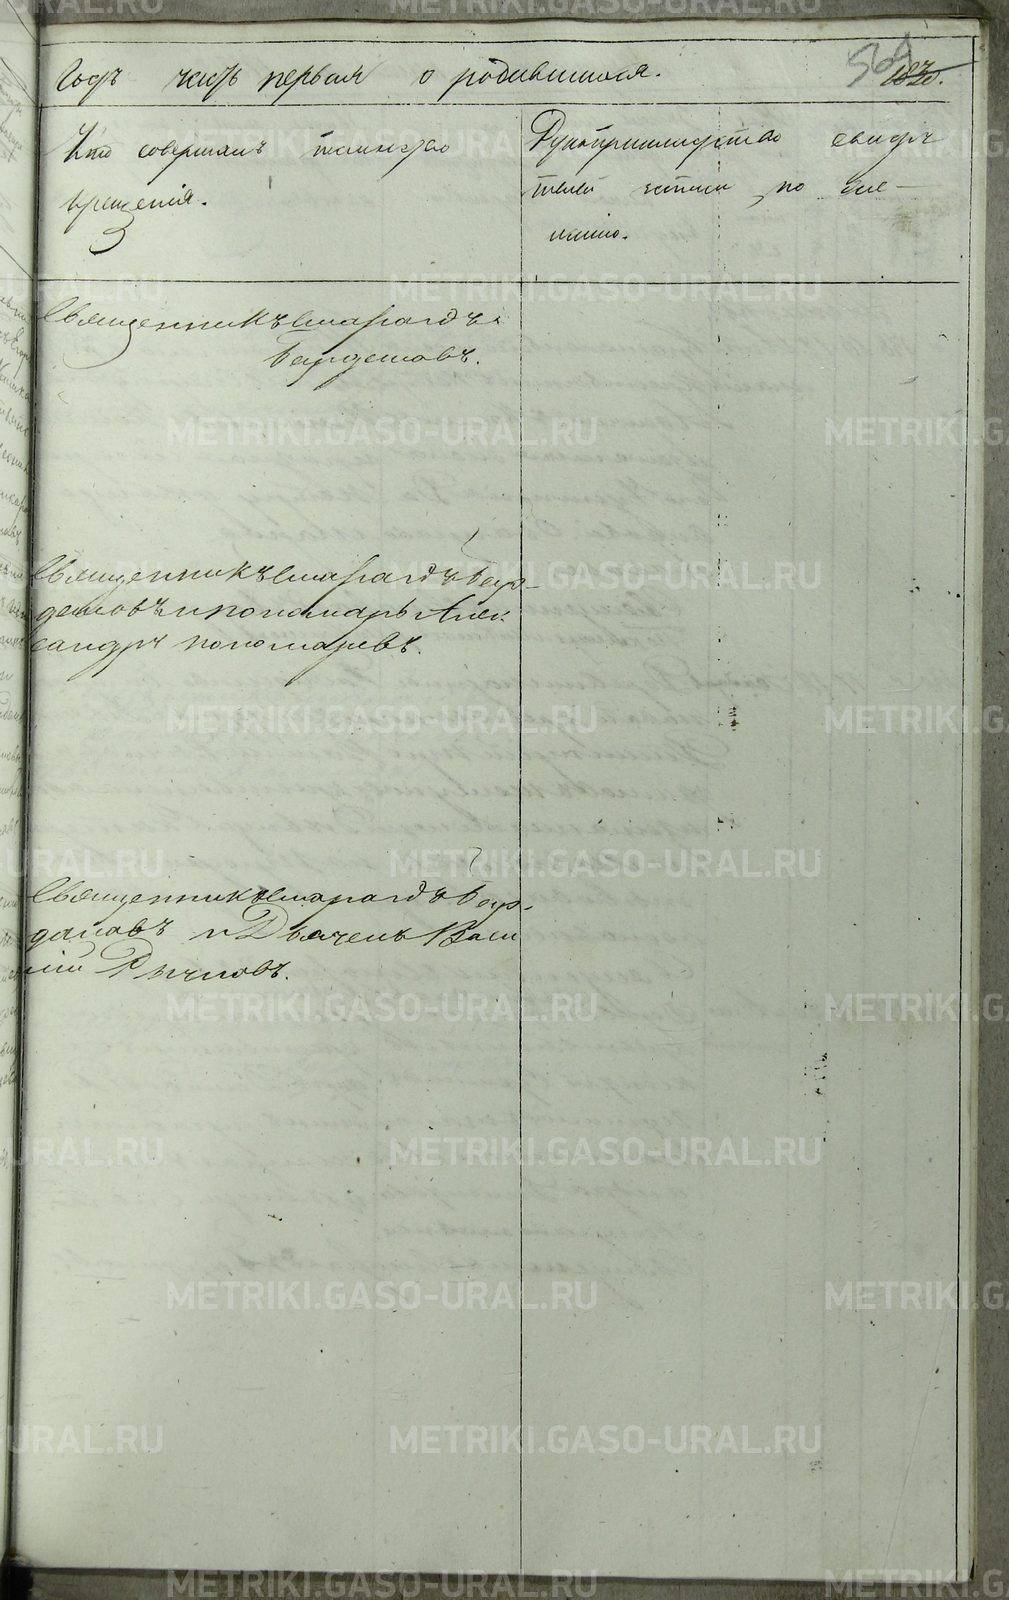 Годъ часть первая о родившихся.
569
Кто совершалъ таинство
крещенія.
Рукоприкладство свидѣ
телей записи по же—
ланію.
Священникъ Смарагдъ
Бирдемовъ.
Священникъ Смарагдъ Бир-
демовъ и пономарь Алек
сандръ Пономаревъ.
Священникъ Смарагдъ Бир-
демовъ и Дьячекъ Васи
лій Рычковъ.
METRIKI.GASO-URAL.RU